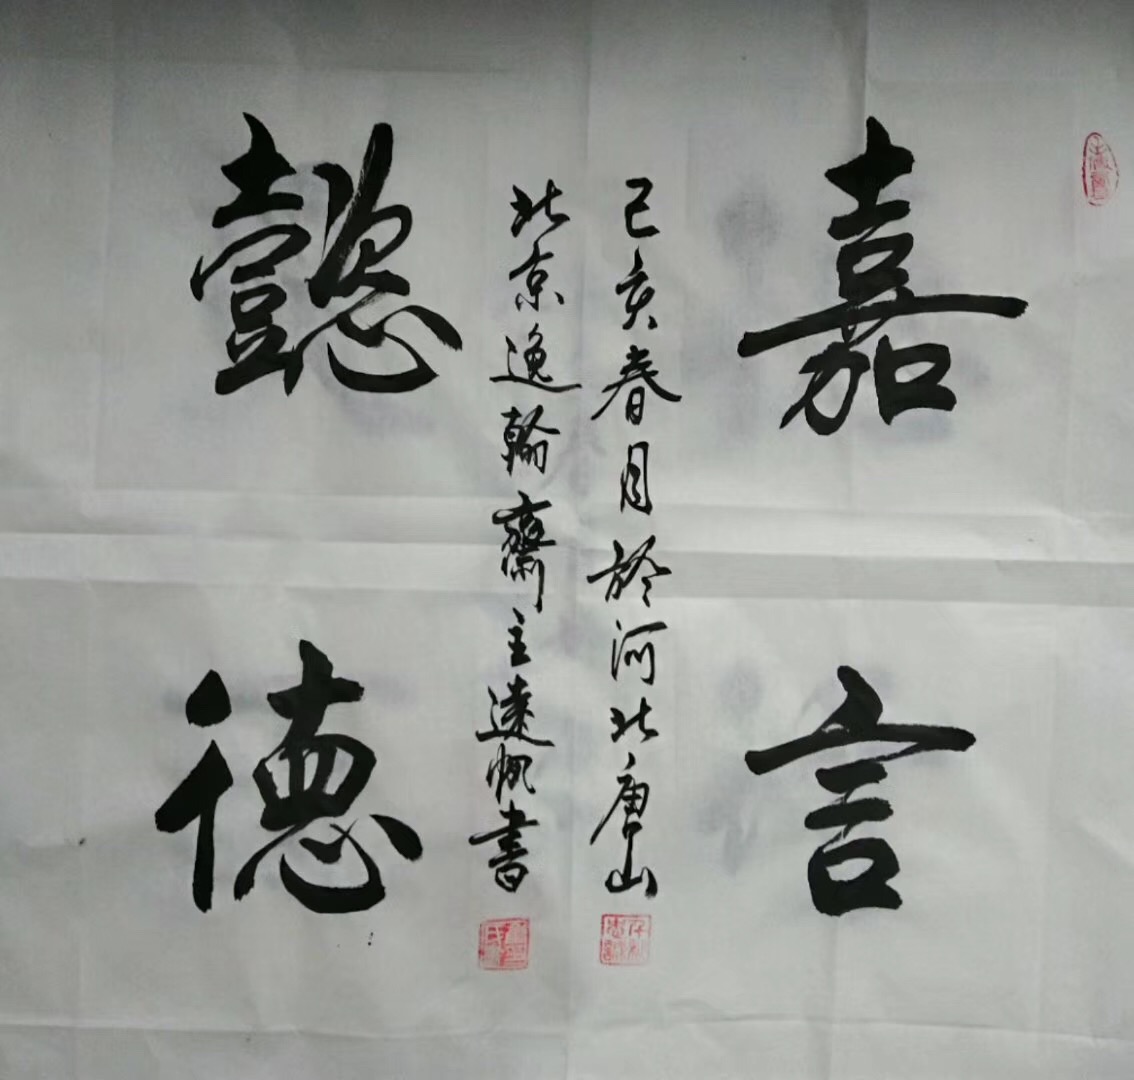 嘉言
懿德
己亥春月於河北唐山
北京逸翰齋主遠帆書